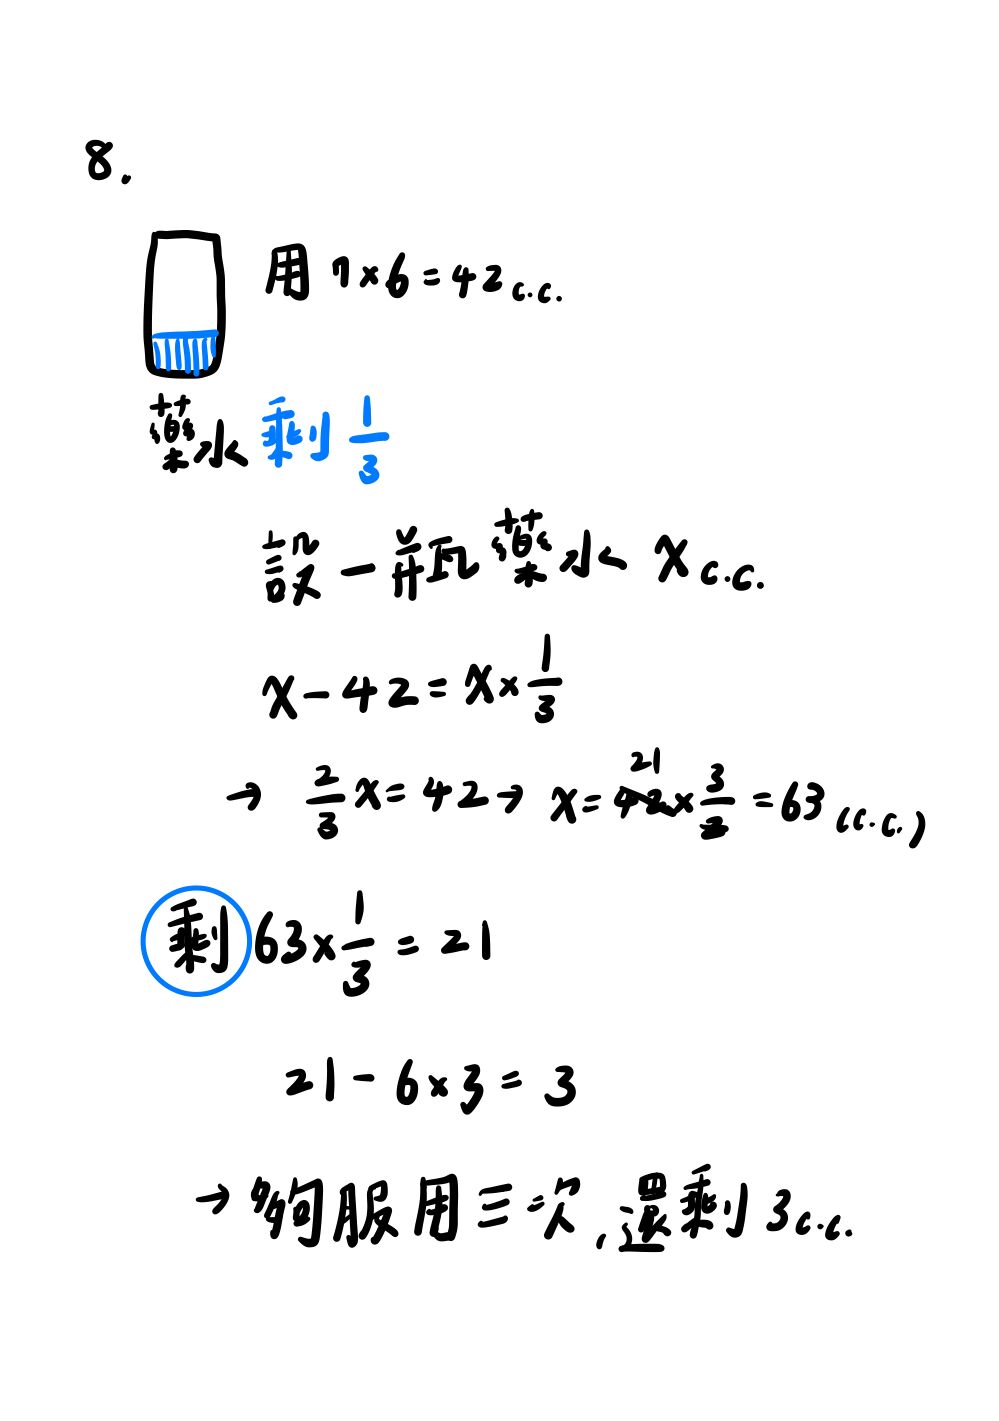 8.
用 7×6=42 c.c.
藥水 剩 1/3
設一瓶藥水 x c.c.
x-42=x×1/3
→ 2/3 x=42→ x=42×3/2=63 (c.c.)
21
剩 63×1/3=21
21-6×3=3
→夠服用三次,還剩 3 c.c.